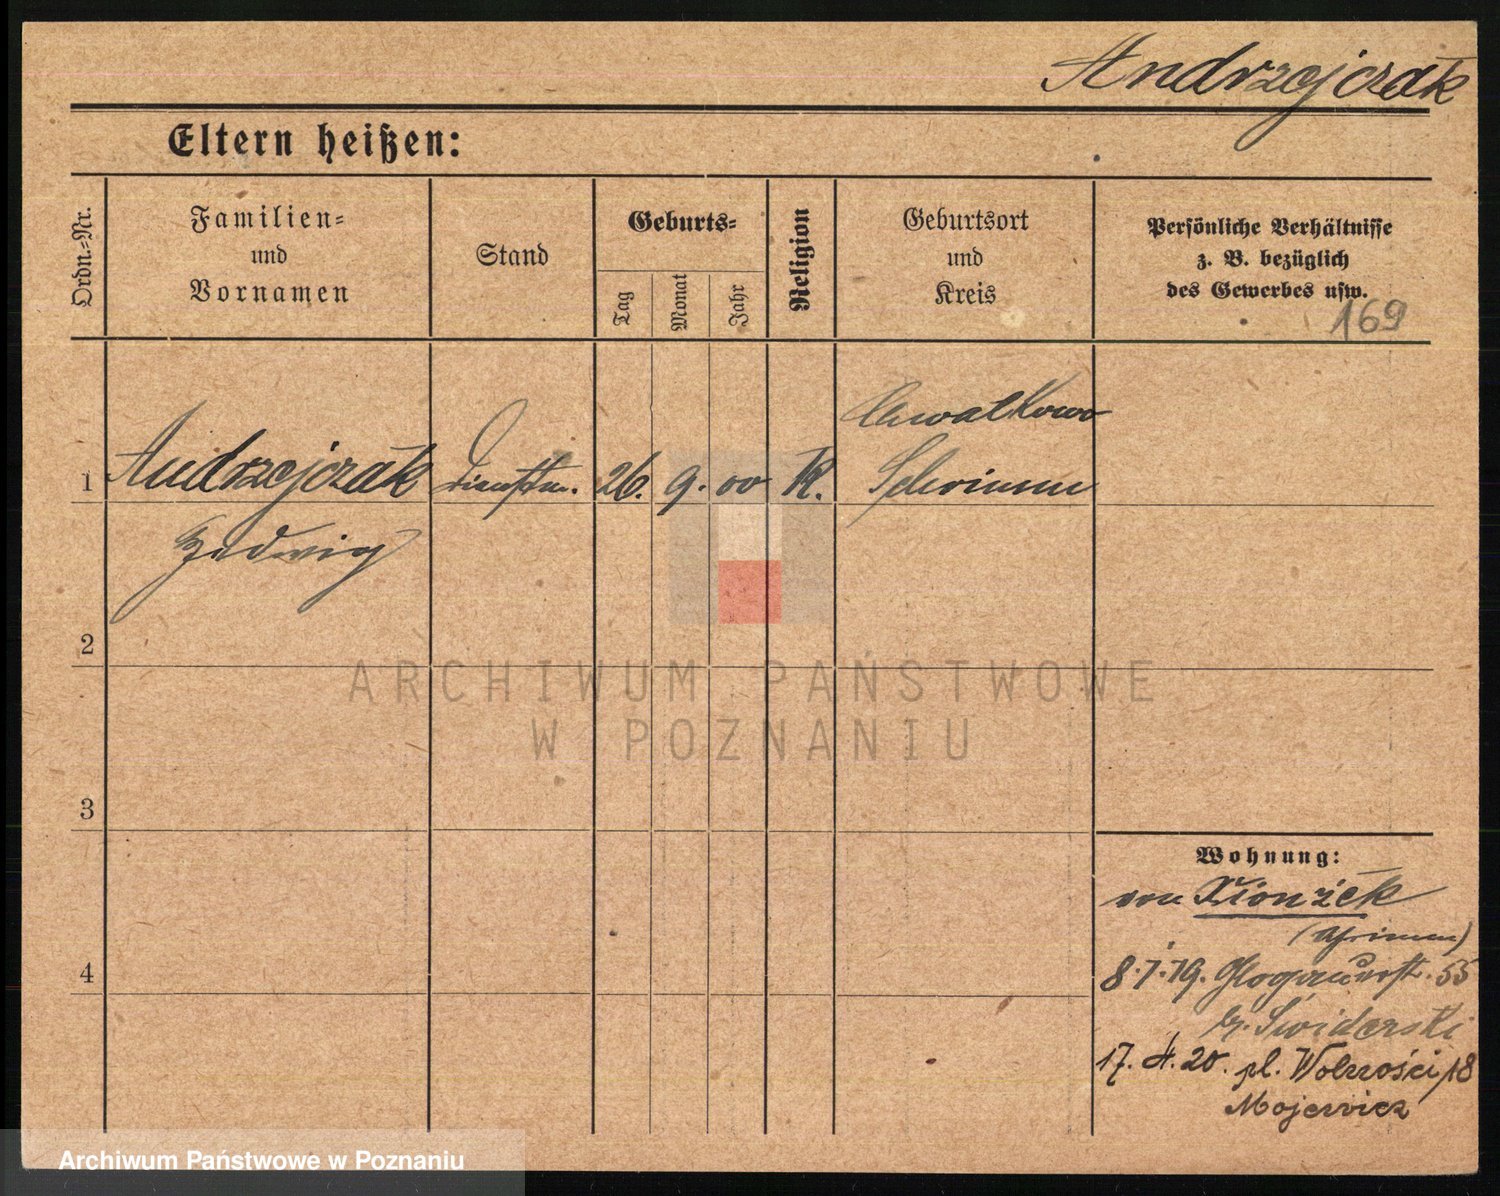 Andrzejczak
Eltern heißen:
Ordn.-Nr.
Familien-
und
Vornamen
Stand
Geburts-
Tag
Monat
Jahr
Religion
Geburtsort
und
Kreis
Persönliche Verhältnisse
z. B. bezüglich
des Gewerbes usw.
169
1
Andrzejczak
Dienstm.
26.
9.
00
K.
Chwalkowo
Schrimm
Hedwig
2
ARCHIWUM PAŃSTWOWE
W POZNANIU
3
Wohnung:
von Xionzek
(Schrimm)
4
8.1.19. Glogauerstr. 55
b. Swiderski
17. 4. 20. pl. Wolności 18
Majerwicz
Archiwum Państwowe w Poznaniu